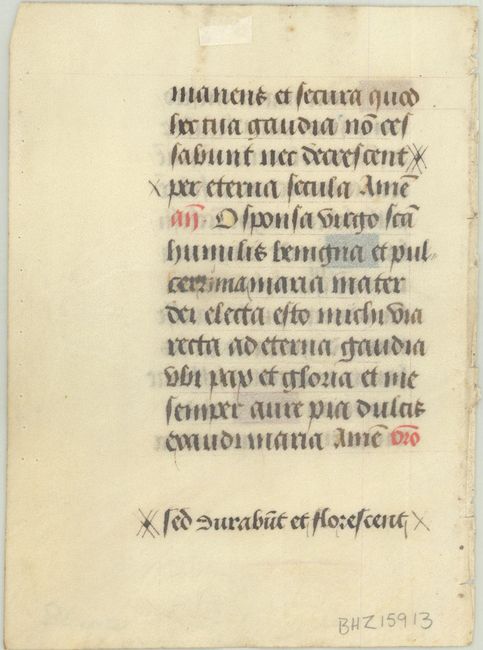 manens et secura quod
hec tua gaudia nō ces
sabunt nec decrescent
per eterna secula Amē
añ. O sponsa virgo scā
humilis benigna et pul-
cerrima maria mater
dei electa esto michi via
recta ad eterna gaudia
vbi pax et gloria et me
semper aure pia dulcis
exaudi maria Amē Orō
sed durabūt et florescent
BHZ15913